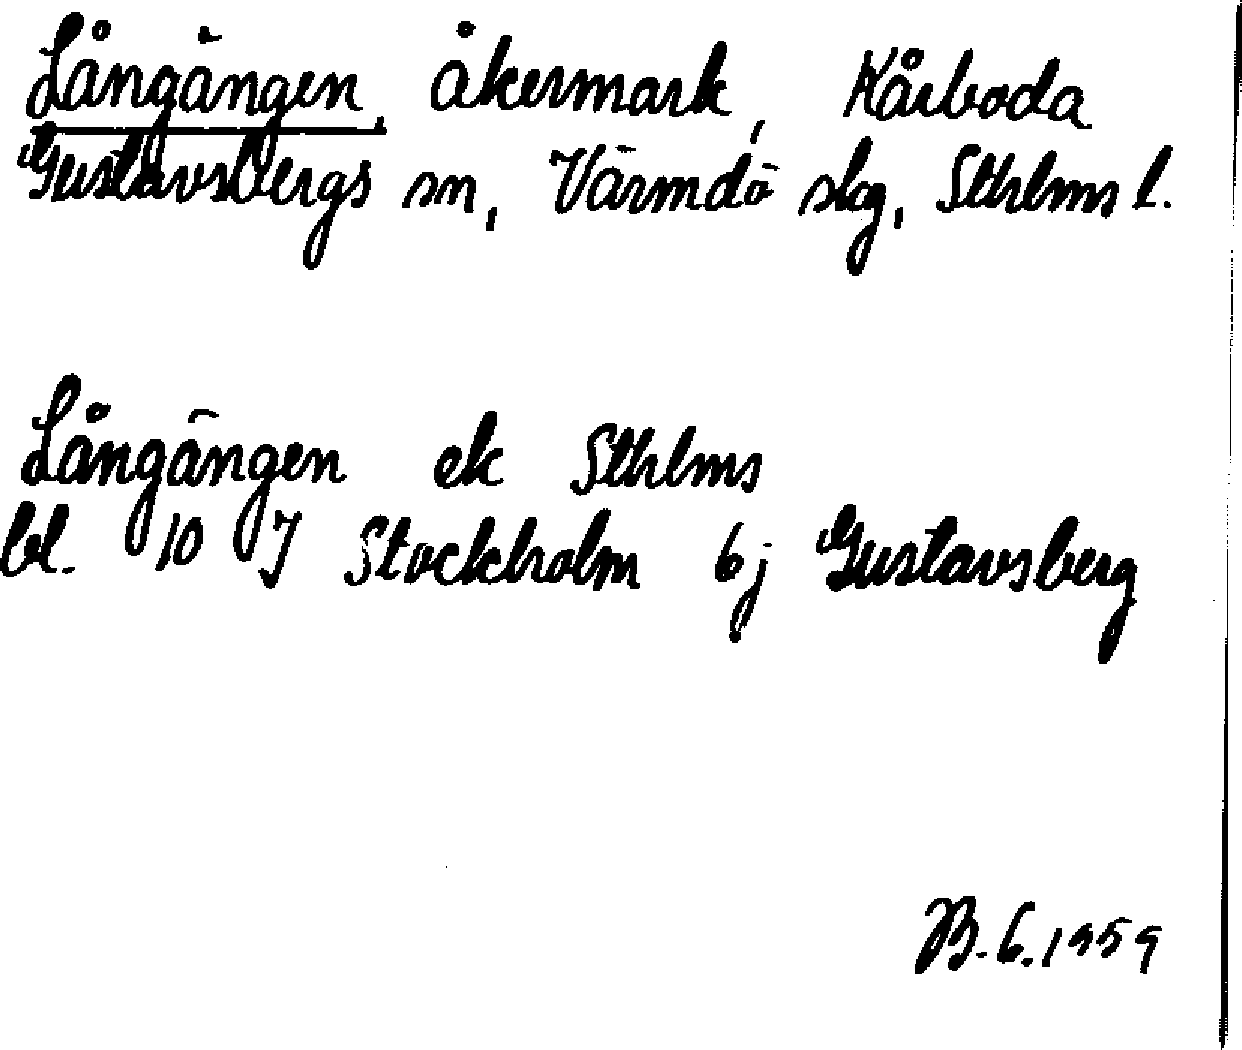 Långängen, åkermark, Kårboda
Gustavsbergs sn, Värmdö slg, Sthlms l.
Långängen ek Sthlms
bl. 10 J Stockholm 6j Gustavsberg
B.G. 1959